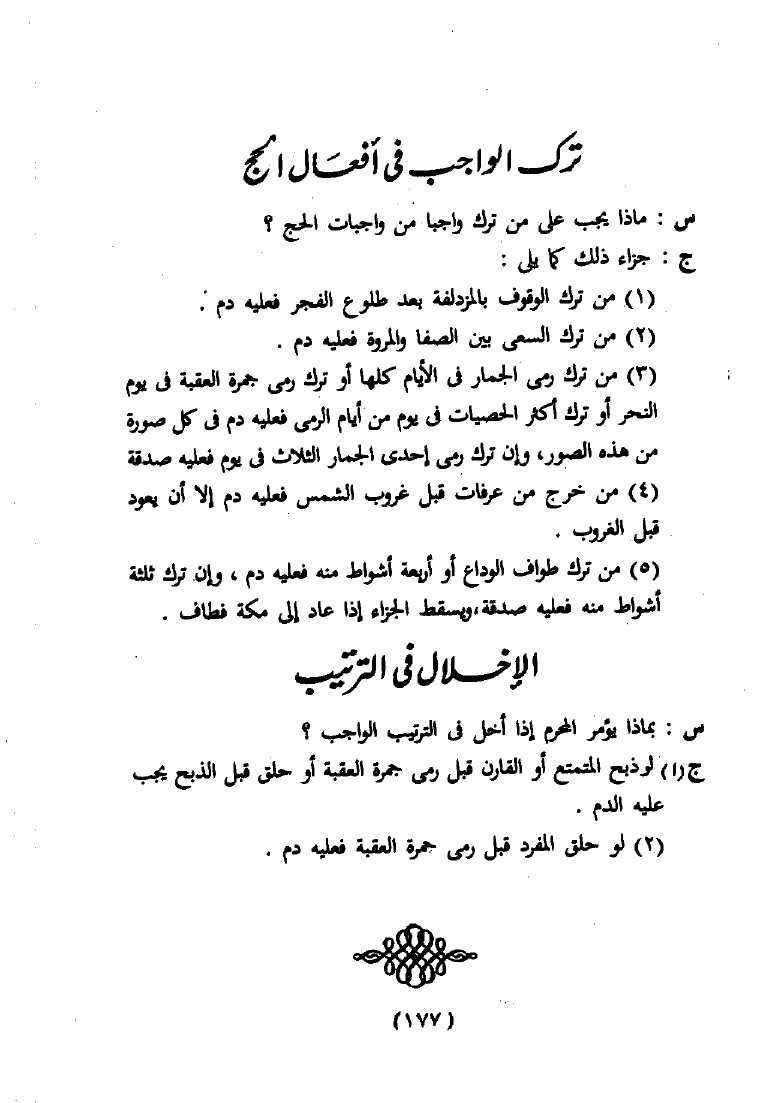 ترك الواجب فى أفعال الحج
س : ماذا يجب على من ترك واجبا من واجبات الحج ؟
ج : جزاء ذلك كما يلى :
(١) من ترك الوقوف بالمزدلفة بعد طلوع الفجر فعليه دم .
(٢) من ترك السعى بين الصفا والمروة فعليه دم .
(٣) من ترك رمى الجمار فى الأيام كلها أو ترك رمى جمرة العقبة فى يوم
النحر أو ترك أكثر الحصيات فى يوم من أيام الرمى فعليه دم فى كل صورة
من هذه الصور، وإن ترك رمى إحدى الجمار الثلاث فى يوم فعليه صدقة
(٤) من خرج من عرفات قبل غروب الشمس فعليه دم إلا أن يعود
قبل الغروب .
(٥) من ترك طواف الوداع أو أربعة أشواط منه فعليه دم ، وإن ترك ثلثة
أشواط منه فعليه صدقة،ويسقط الجزاء إذا عاد إلى مكة فطاف .
الإخلال فى الترتيب
س : بماذا يؤمر المحرم إذا أخل فى الترتيب الواجب ؟
ج(١) لوذبح المتمتع أو القارن قبل رمى جمرة العقبة أو حلق قبل الذبح يجب
عليه الدم .
(٢) لو حلق المفرد قبل رمى جمرة العقبة فعليه دم .
(١٧٧)